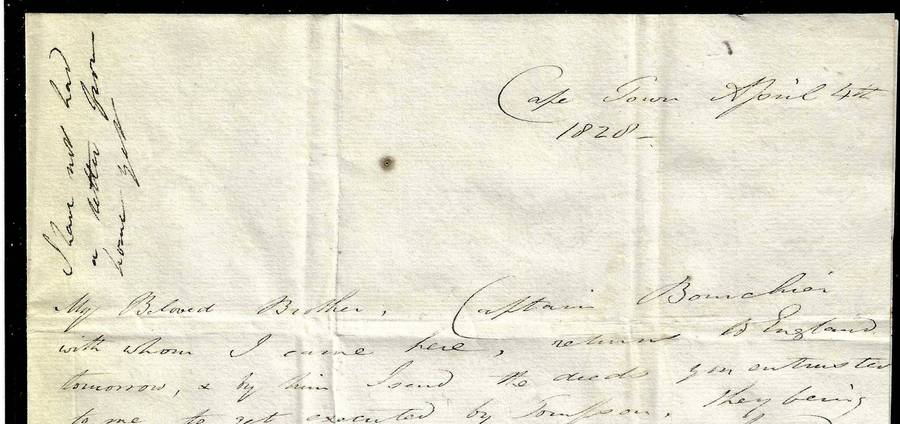 I have not had
a letter from
home yet
Cape Town April 4th
1828 -
My Beloved Brother, Captain Bourchier
with whom I came here, returns to England
tomorrow, & by him I send the deeds you entrusted
to me to get executed by Tompson, they being